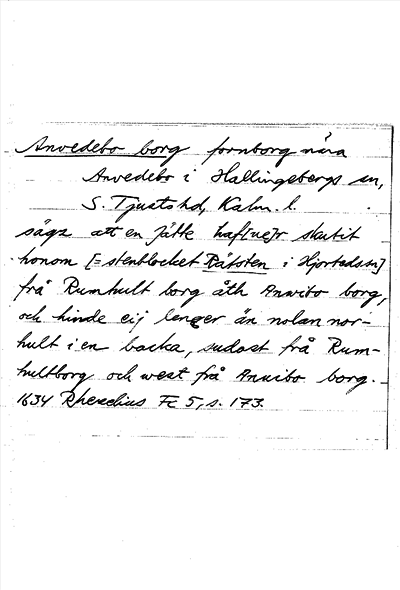 Anvedebo borg fornborg nära
Anvedebo i Hallingebergs sn,
S. Tjusts hd, Kalm. l.
sägz att en Jätte haf[ue]r skutit
honom [= stenblocket Råtsten i Hjortedssn]
frå Rumhult borg åth Anwibo borg,
och hinde eij lenger än nolan nor-
hult i en backa, sudost frå Rum-
hultborg och west frå Anwibo borg.
1634 Rhezelius Fc 5, s. 173.